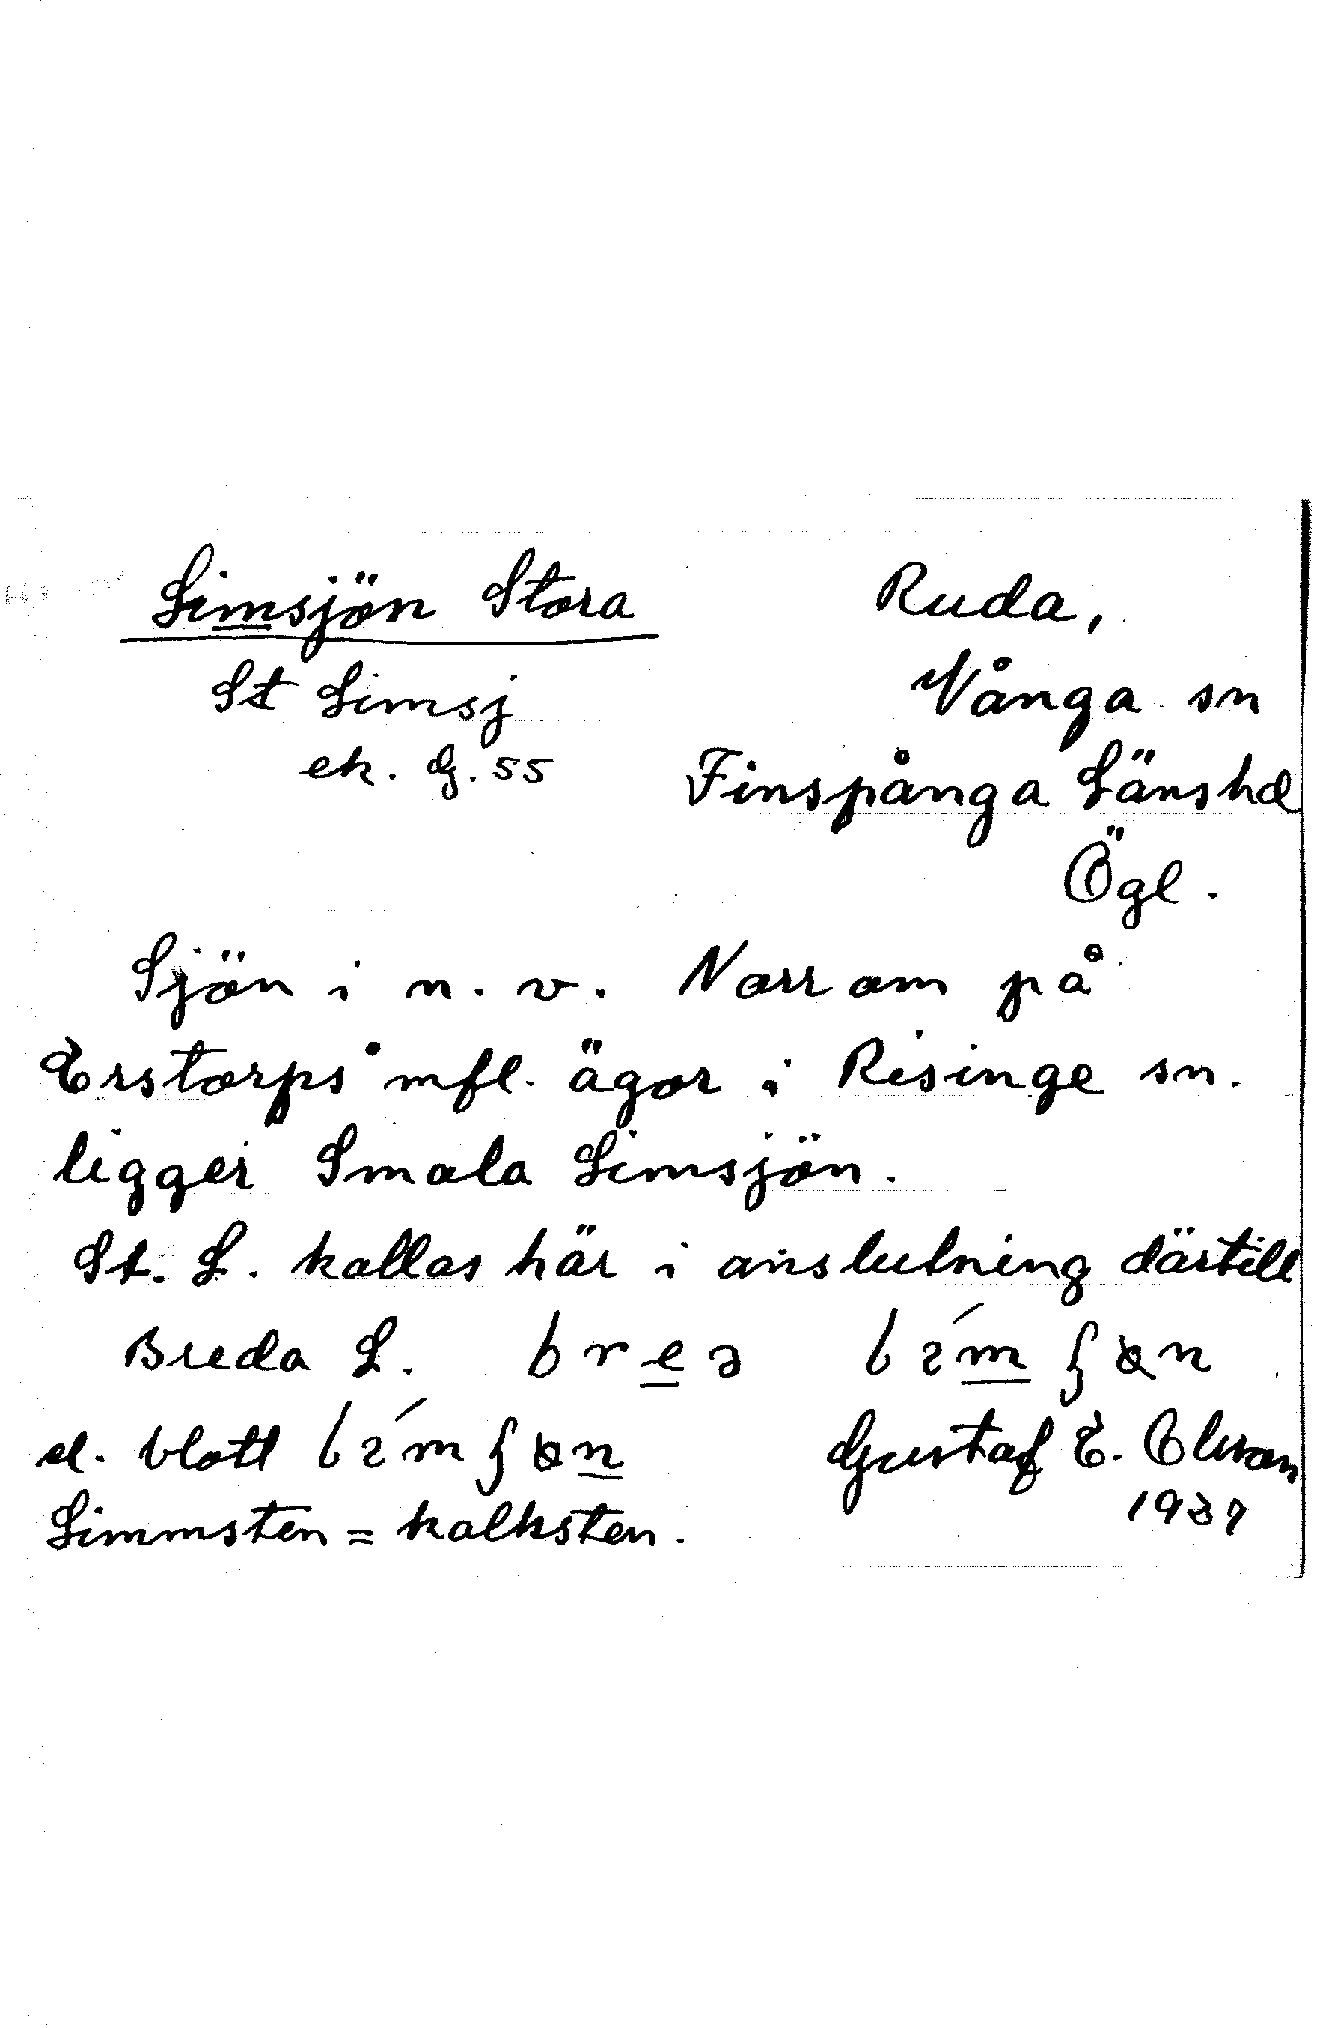 Limsjön Stora
St Limsj
ek. G. 55
Ruda,
Vånga sn
Finspånga Länshd
Ögl.
Sjön i n. v. Norr om på
Erstorps mfl. ägor i Risinge sn.
ligger Smala Limsjön.
St. L. kallas här i anslutning därtill
Breda L.
el. blott
Gustaf E. Olsson
1937
Limmsten = kalksten.